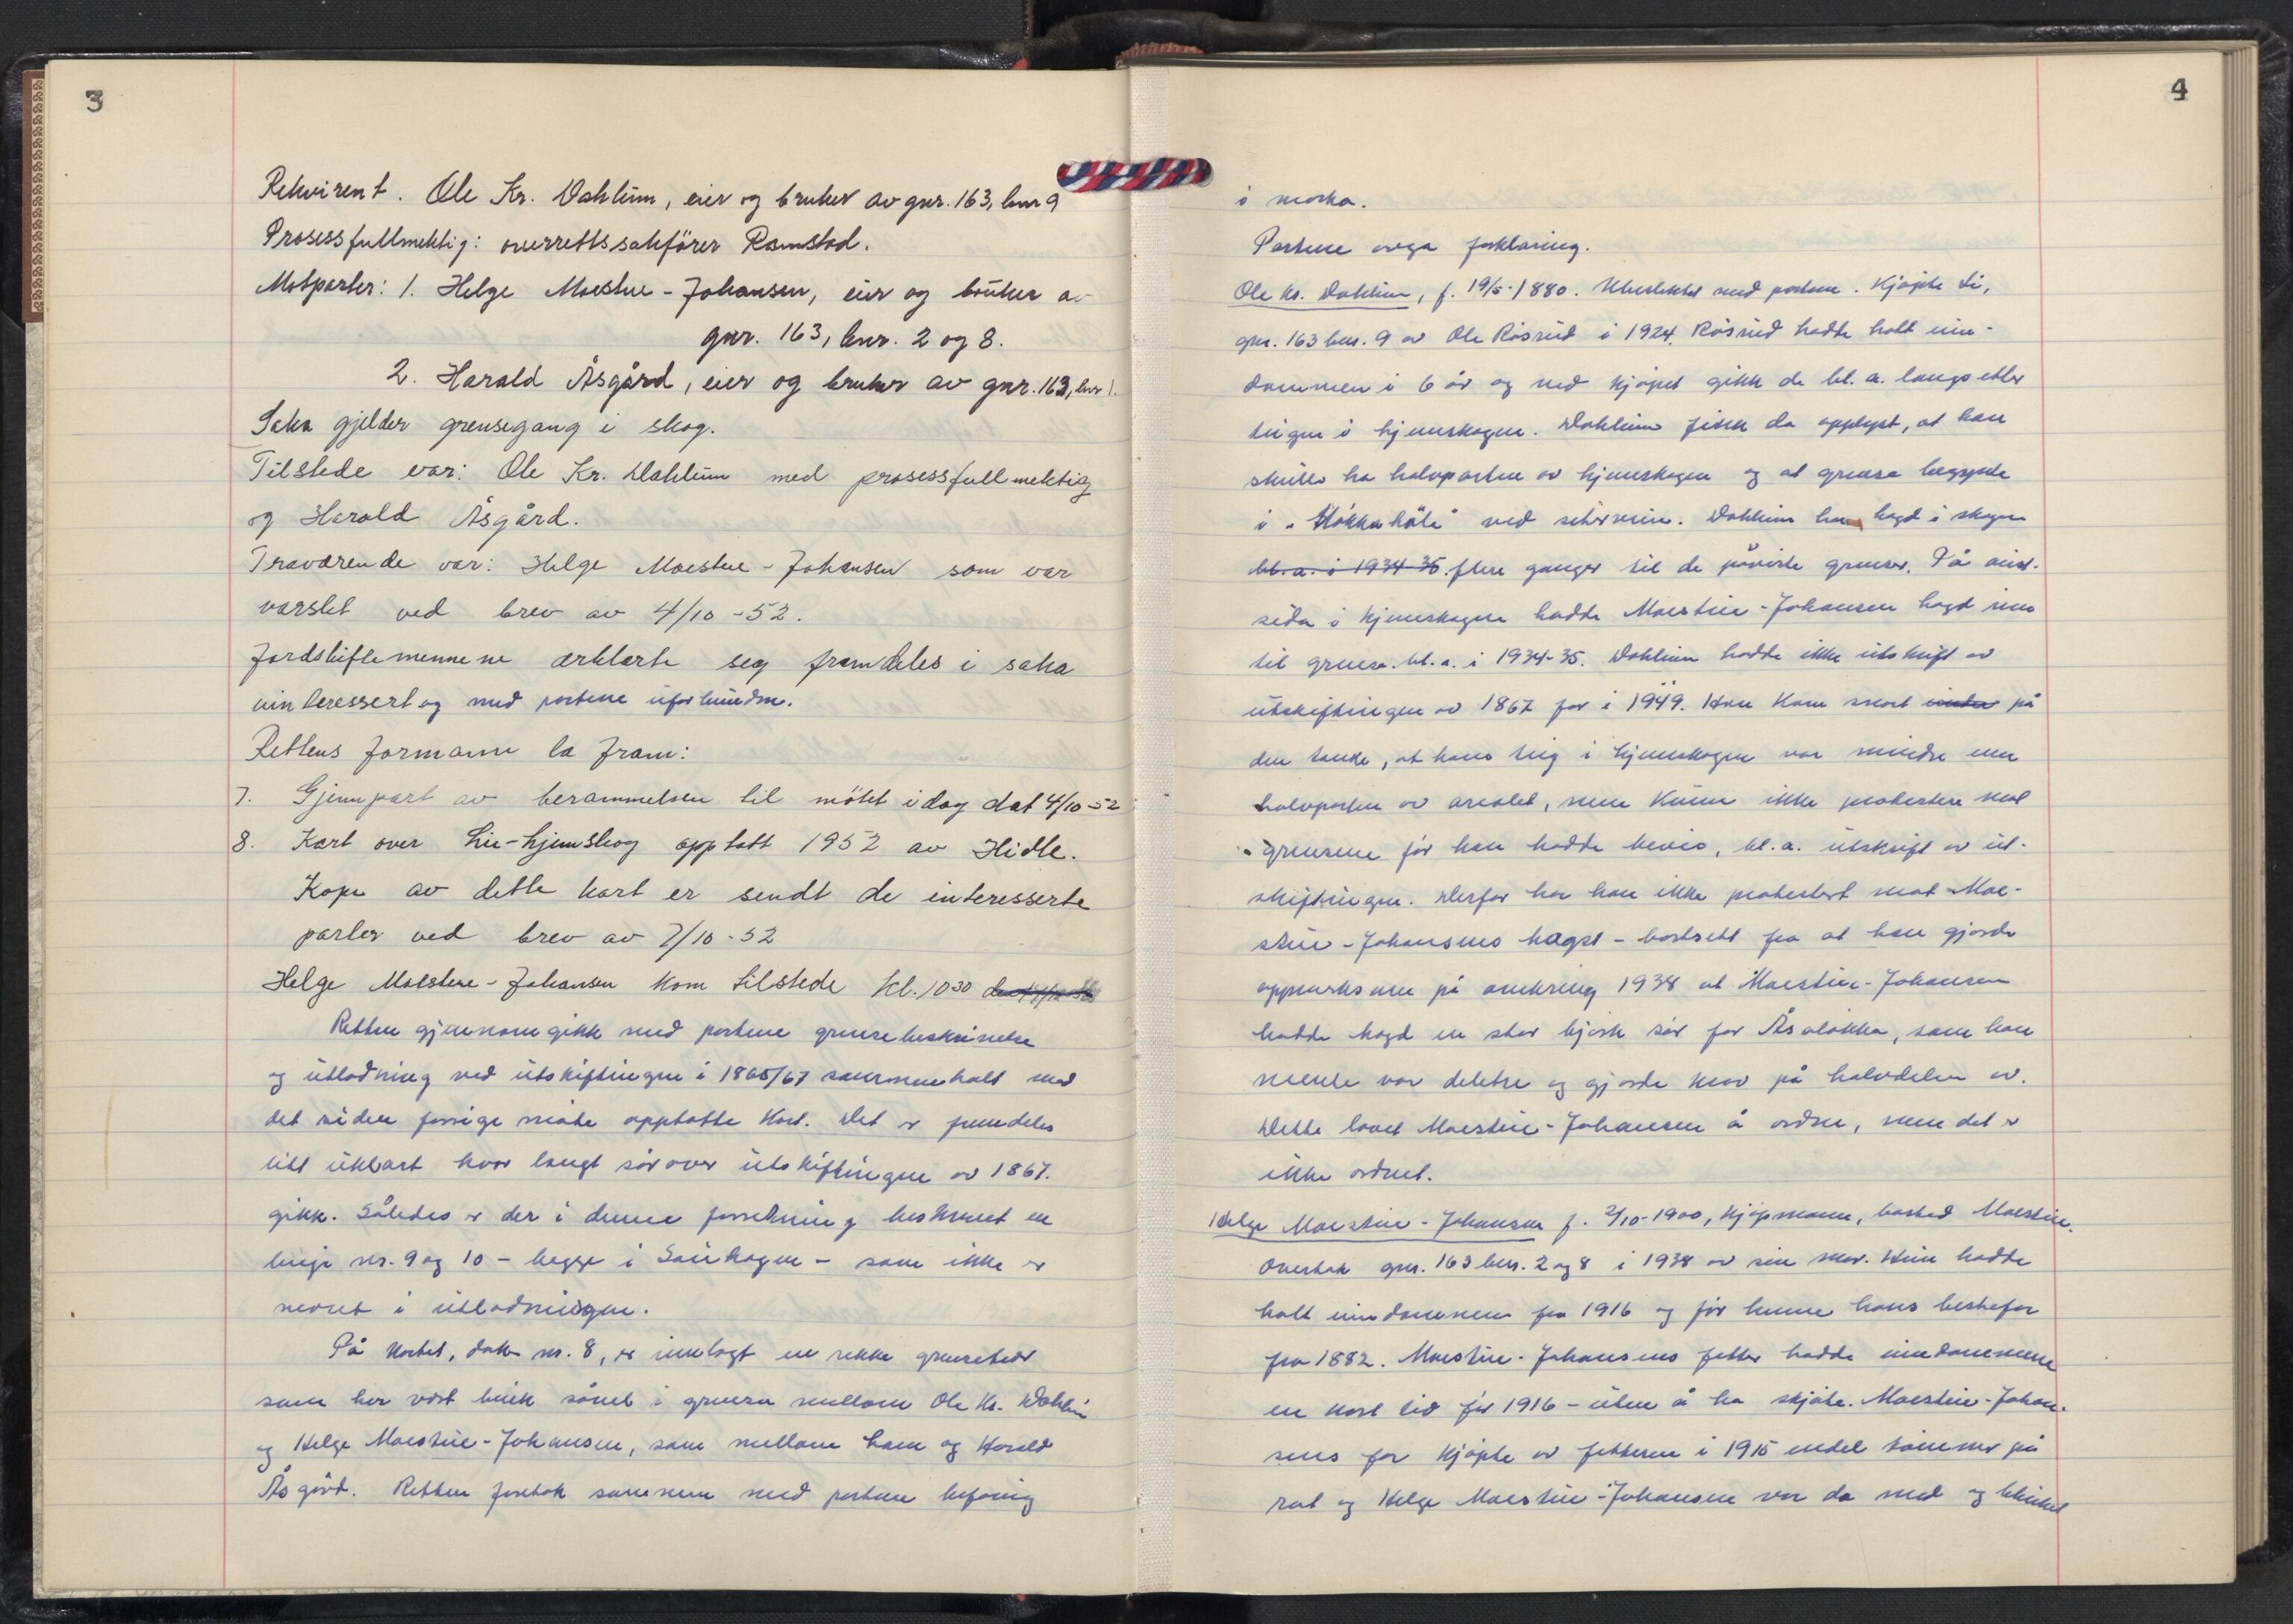 3
Rekvirent. Ole Kr. Dahlum, eier og bruker av gnr. 163, bnr 9
Prosessfullmektig: overrettssakfører Ramstad.
Motparter: 1. Helge Moestue-Johansen, eier og bruker av
gnr. 163, bnr. 2 og 8.
2. Harald Åsgård, eier og bruker av gnr. 163, bnr 1.
Saka gjelder grensegang i skog.
Tilstede var: Ole Kr. Dahlum med prosessfullmektig
og Harald Åsgård.
Fraværende var: Helge Moestue-Johansen som var
varslet ved brev av 4/10-52.
Jordskiftemennene erklærte seg framdeles i saka
uinteressert og med partene uforbundne.
Rettens formann la fram:
7. Gjennpart av berammelsen til møtet idag dat 4/10-52
8. Kart over Lie-hjemskog opptatt 1952 av Hidle.
Kopi av dette kart er sendt de interesserte
parter ved brev av 7/10-52
Helge Moestue-Johansen kom tilstede kl. 10 30
Retten gjennomgikk med partene grensebeskrivelse
og utlodning ved utskiftingen i 1865/67 sammenholt med
det siden forrige møte opptatte kart. Det er fremdeles
litt uklart hvor langt sørover utskiftingen av 1867.
gikk. Således er der i denne forretning beskrevet en
linje nr. 9 og 10 - begge i Sauhagen - som ikke er
nevnt i utlodningen.
På kartet, dok nr. 8, er innlagt en rekke grensetrær
som har vært bruk såvel i grensa mellom Ole Kr. Dahlum
og Helge Moestue-Johansen, som mellom ham og Harald
Åsgård. Retten foretok sammen med partene befaring
4
i marka.
Partene avga forklaring.
Ole Kr. Dahlum, f. 19/5-1880. Ubeslektet med partene. Kjøpte Li,
gnr. 163 bnr. 9 av Ole Røsrud i 1924. Røsrud hadde hatt eien-
dommen i 6 år og ved kjøpet gikk de bl. a. langs etter
teigen i hjemskogen. Dahlum fikk da opplyst, at han
skulle ha halvparten av hjemskogen og at grensa begynte
i "Hökkahöla" ved seterveien. Dahlum har hogd i skogen
bl. a. i 1934-35. flere ganger til de påviste grenser. På aust-
sida i hjemskogen hadde Moestue-Johansen hogd inn
til grensa. bl. a. i 1934-35. Dahlum hadde ikke utskrift av
utskiftingen av 1867 før i 1949. Han kom snart på
den tanke, at hans teig i hjemskogen var mindre enn
halvparten av arealet, men kunne ikke protestere mot
grensene før han hadde bevis, bl. a. utskrift av ut-
skiftingen. Derfor har han ikke protestert mot Moe-
stue-Johansens hogst - bortsett fra at han gjorde
oppmerksom på omkring 1938 at Moestue-Johansen
hadde hogd en stor bjerk sør for Åsaløkka, som han
mente var deletre og gjorde krav på halvdelen av.
Dette lovet Moestue-Johansen å ordne, men det er
ikke ordnet.
Helge Moestue-Johansen f. 2/10-1900, kjøpmann, bosted Moestue.
Overtok gnr. 163 bnr. 2 og 8 i 1938 av sin mor. Hun hadde
hatt eiendommen fra 1916 og før henne hans bestefar
fra 1882. Moestue-Johansens fetter hadde eiendommene
en kort tid før 1916 - uten å ha skjøte. Moestue-Johan-
sens far kjøpte av fetteren i 1915 endel tømmer på
rot og Helge Moestue-Johansen var da med og blinket